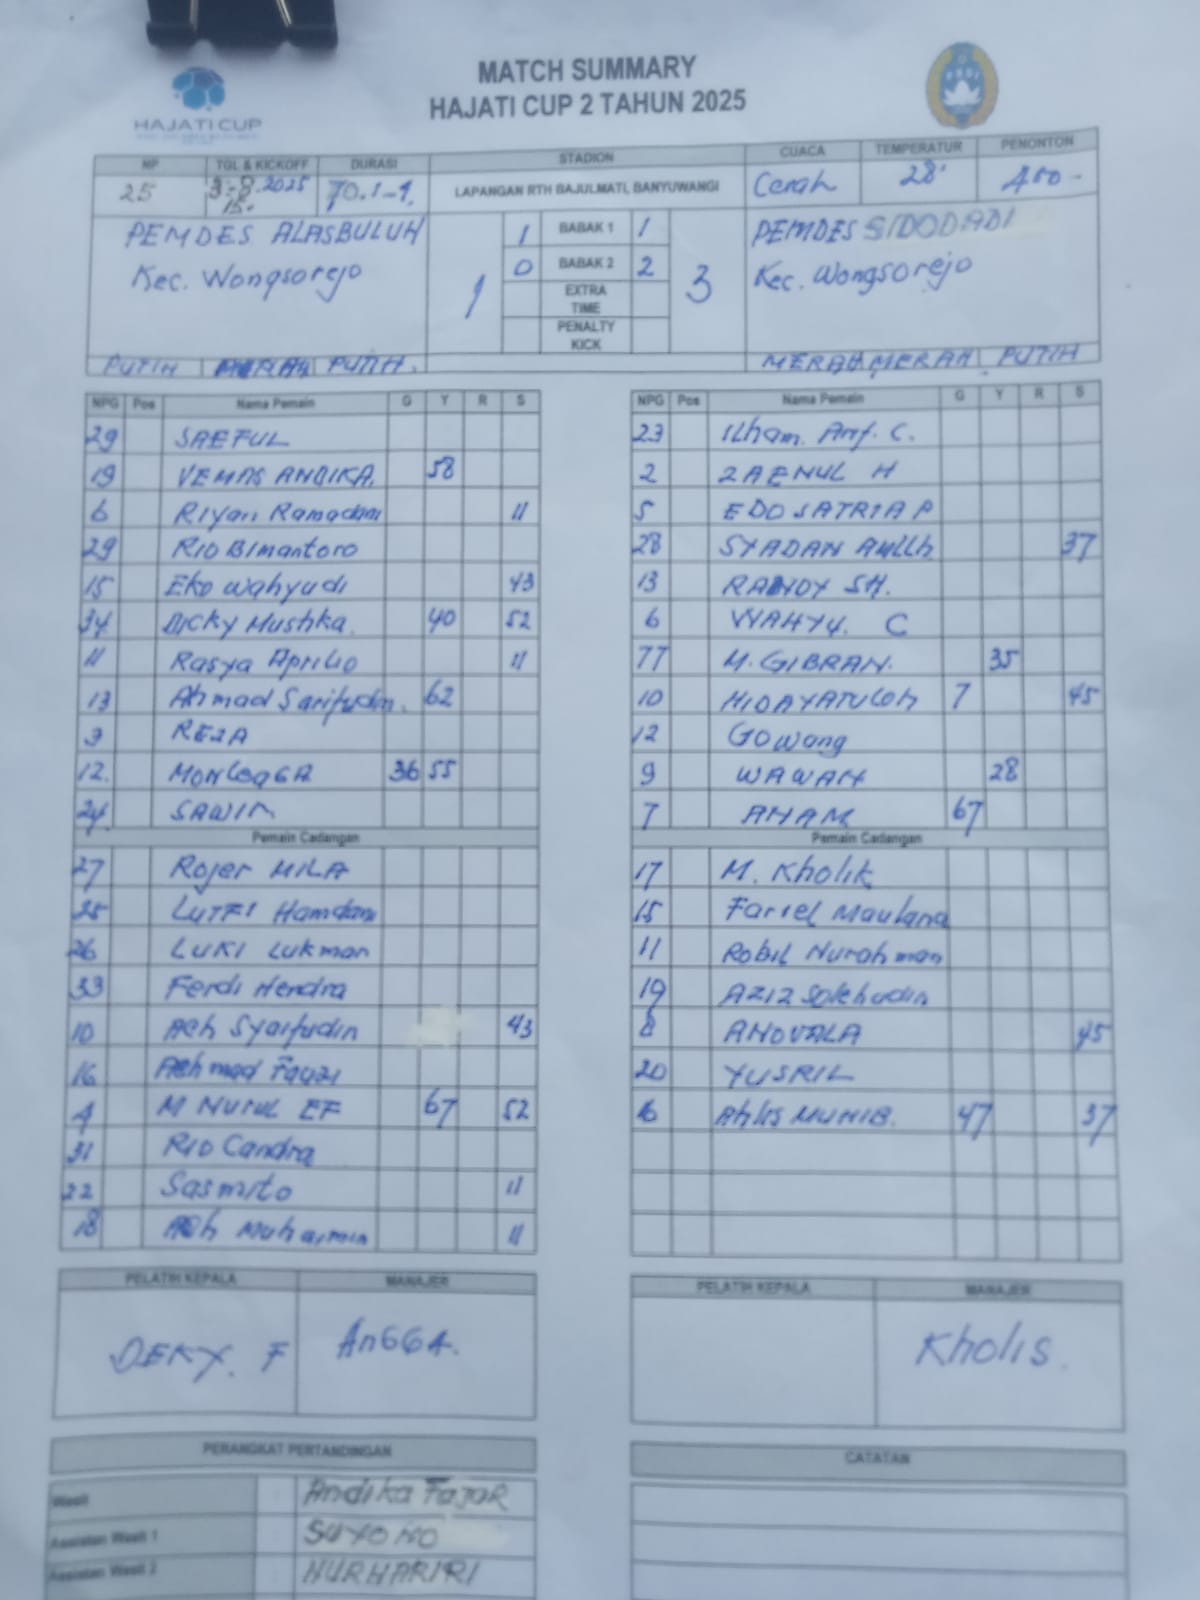 MATCH SUMMARY
HAJATI CUP 2 TAHUN 2025
HAJATI CUP
PSSI
NP TGL & KICKOFF DURASI STADION CUACA TEMPERATUR PENONTON
25 3-8-2025 15. 70.1-1. LAPANGAN RTH BAJULMATI, BANYUWANGI Cerah 28° 400-
PEMDES ALASBULUH 1 BABAK 1 1 PEMDES SIDODADI
Kec. Wongsorejo 1 0 BABAK 2 2 3 Kec. Wongsorejo
EXTRA TIME
PENALTY KICK
PUTIH MERAH PUTIH. MERAH MERAH PUTIH
NPG Pos Nama Pemain G Y R S
29 SAEFUL
19 VEMAS ANDIKA. 58
6 Riyan Ramadani 11
29 RIO BImantoro
15 Eko Wahyudi 43
34 DICKY Mushka. 40 52
11 Rasya Aprilio 11
13 Ahmad Sarifudin. 62
3 REZA
12. 36 55
24 SAWIN
Pemain Cadangan
27 Rojer MILA
25 LUTFI Hamdani
26 LUKI Lukman
33 Ferdi Hendra
10 Ach Syaifudin 43
16 Achmad Fauzi
4 M NURUL EF 67 52
31 RIO Candra
22 Sasmito 11
18 Ach Muhaimin 11
NPG Pos Nama Pemain G Y R S
23 Ilham. Arif. C.
2 ZAENUL H
5 EDO SATRIA P
28 SYADAN 37
13 RANDY SH.
6 WAHYU. C
77 M. GIBRAN. 35
10 HIDAYATULOH 7 45
12 Gowang
9 WAWAN 28
7 AHAM 67
Pemain Cadangan
17 M. Kholik
15 Fariel Maulana
11 Robil Nurahman
19 AZIZ Solehudin
8 ANOVALA 45
20 YUSRIL
16 Ahlis MUNIB. 47 37
PELATIH KEPALA MANAJER
DEKY. F AnGGA.
PELATIH KEPALA MANAJER
Kholis.
PERANGKAT PERTANDINGAN
Wasit Andika FAJAR
Assisten Wasit 1 SUYONO
Assisten Wasit 2 NURHARIRI
CATATAN